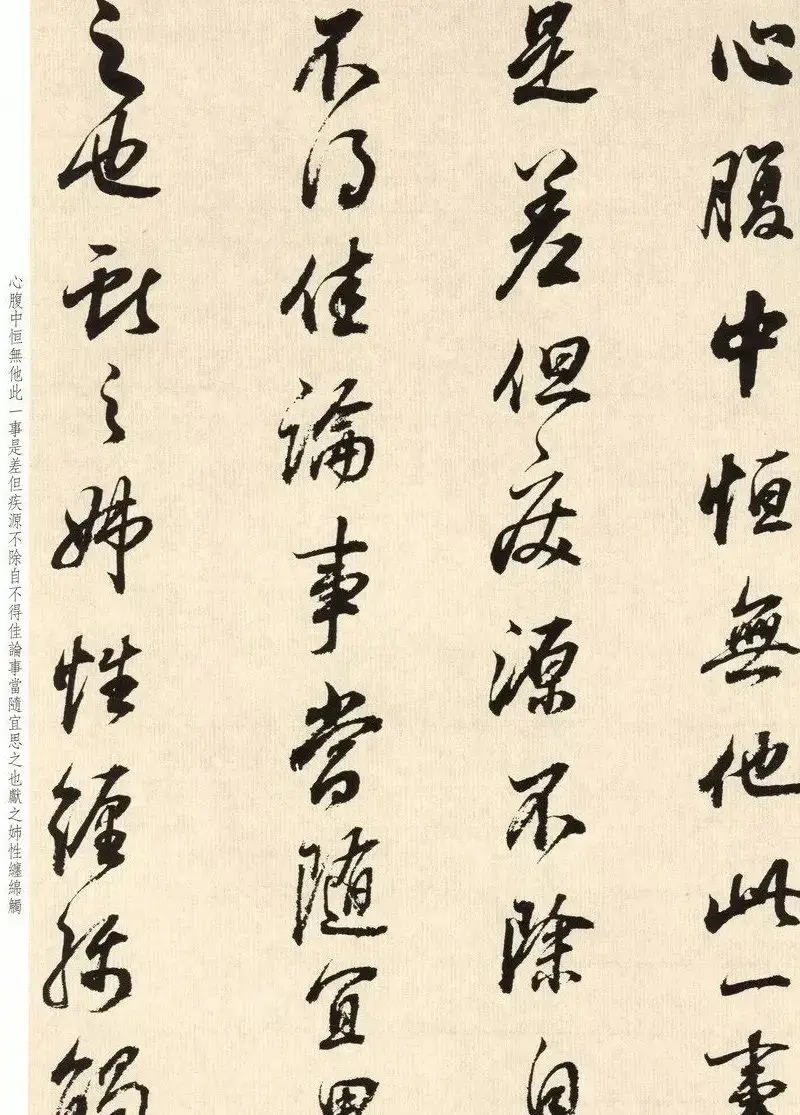 心腹中恒無他此一事
是差但疾源不除自
不得佳論事當隨宜思
之也獻之姊性纏綿觸
心腹中恒無他此一事是差但疾源不除自不得佳論事當隨宜思之也獻之姊性纏綿觸